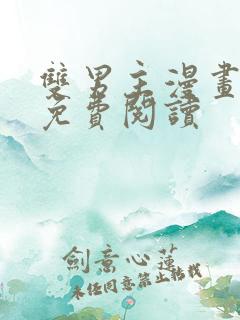 雙男主漫畫
免費閱讀
劍意心蓮
未經同意禁止轉載